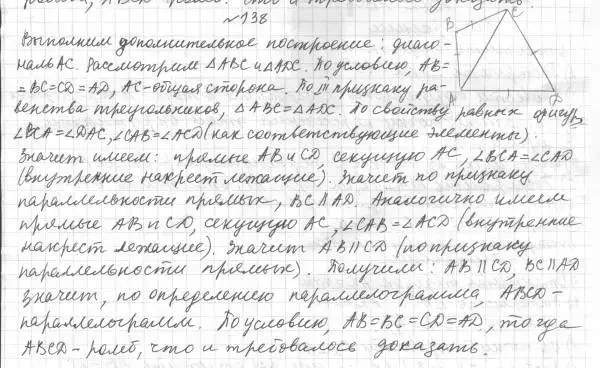 №138
Выполним дополнительное построение: диаго-
наль AC. Рассмотрим ΔABC и ΔADC. По условию, AB=
=BC=CD=AD, AC-общая сторона. По III признаку ра-
венства треугольников, ΔABC=ΔADC. По свойству равных фигур,
∠BCA=∠DAC, ∠CAB=∠ACD (как соответствующие элементы).
Значит имеем: прямые AB и CD, секущую AC, ∠BCA=∠CAD
(внутренние накрест лежащие). Значит по признаку
параллельности прямых, BC∥AD. Аналогично имеем
прямые AB и CD, секущую AC, ∠CAB=∠ACD (внутренние
накрест лежащие). Значит AB∥CD (по признаку
параллельности прямых). Получили: AB∥CD, BC∥AD
Значит, по определению параллелограмма, ABCD-
параллелограмм. По условию, AB=BC=CD=AD, тогда
ABCD-ромб, что и требовалось доказать.
B
C
A